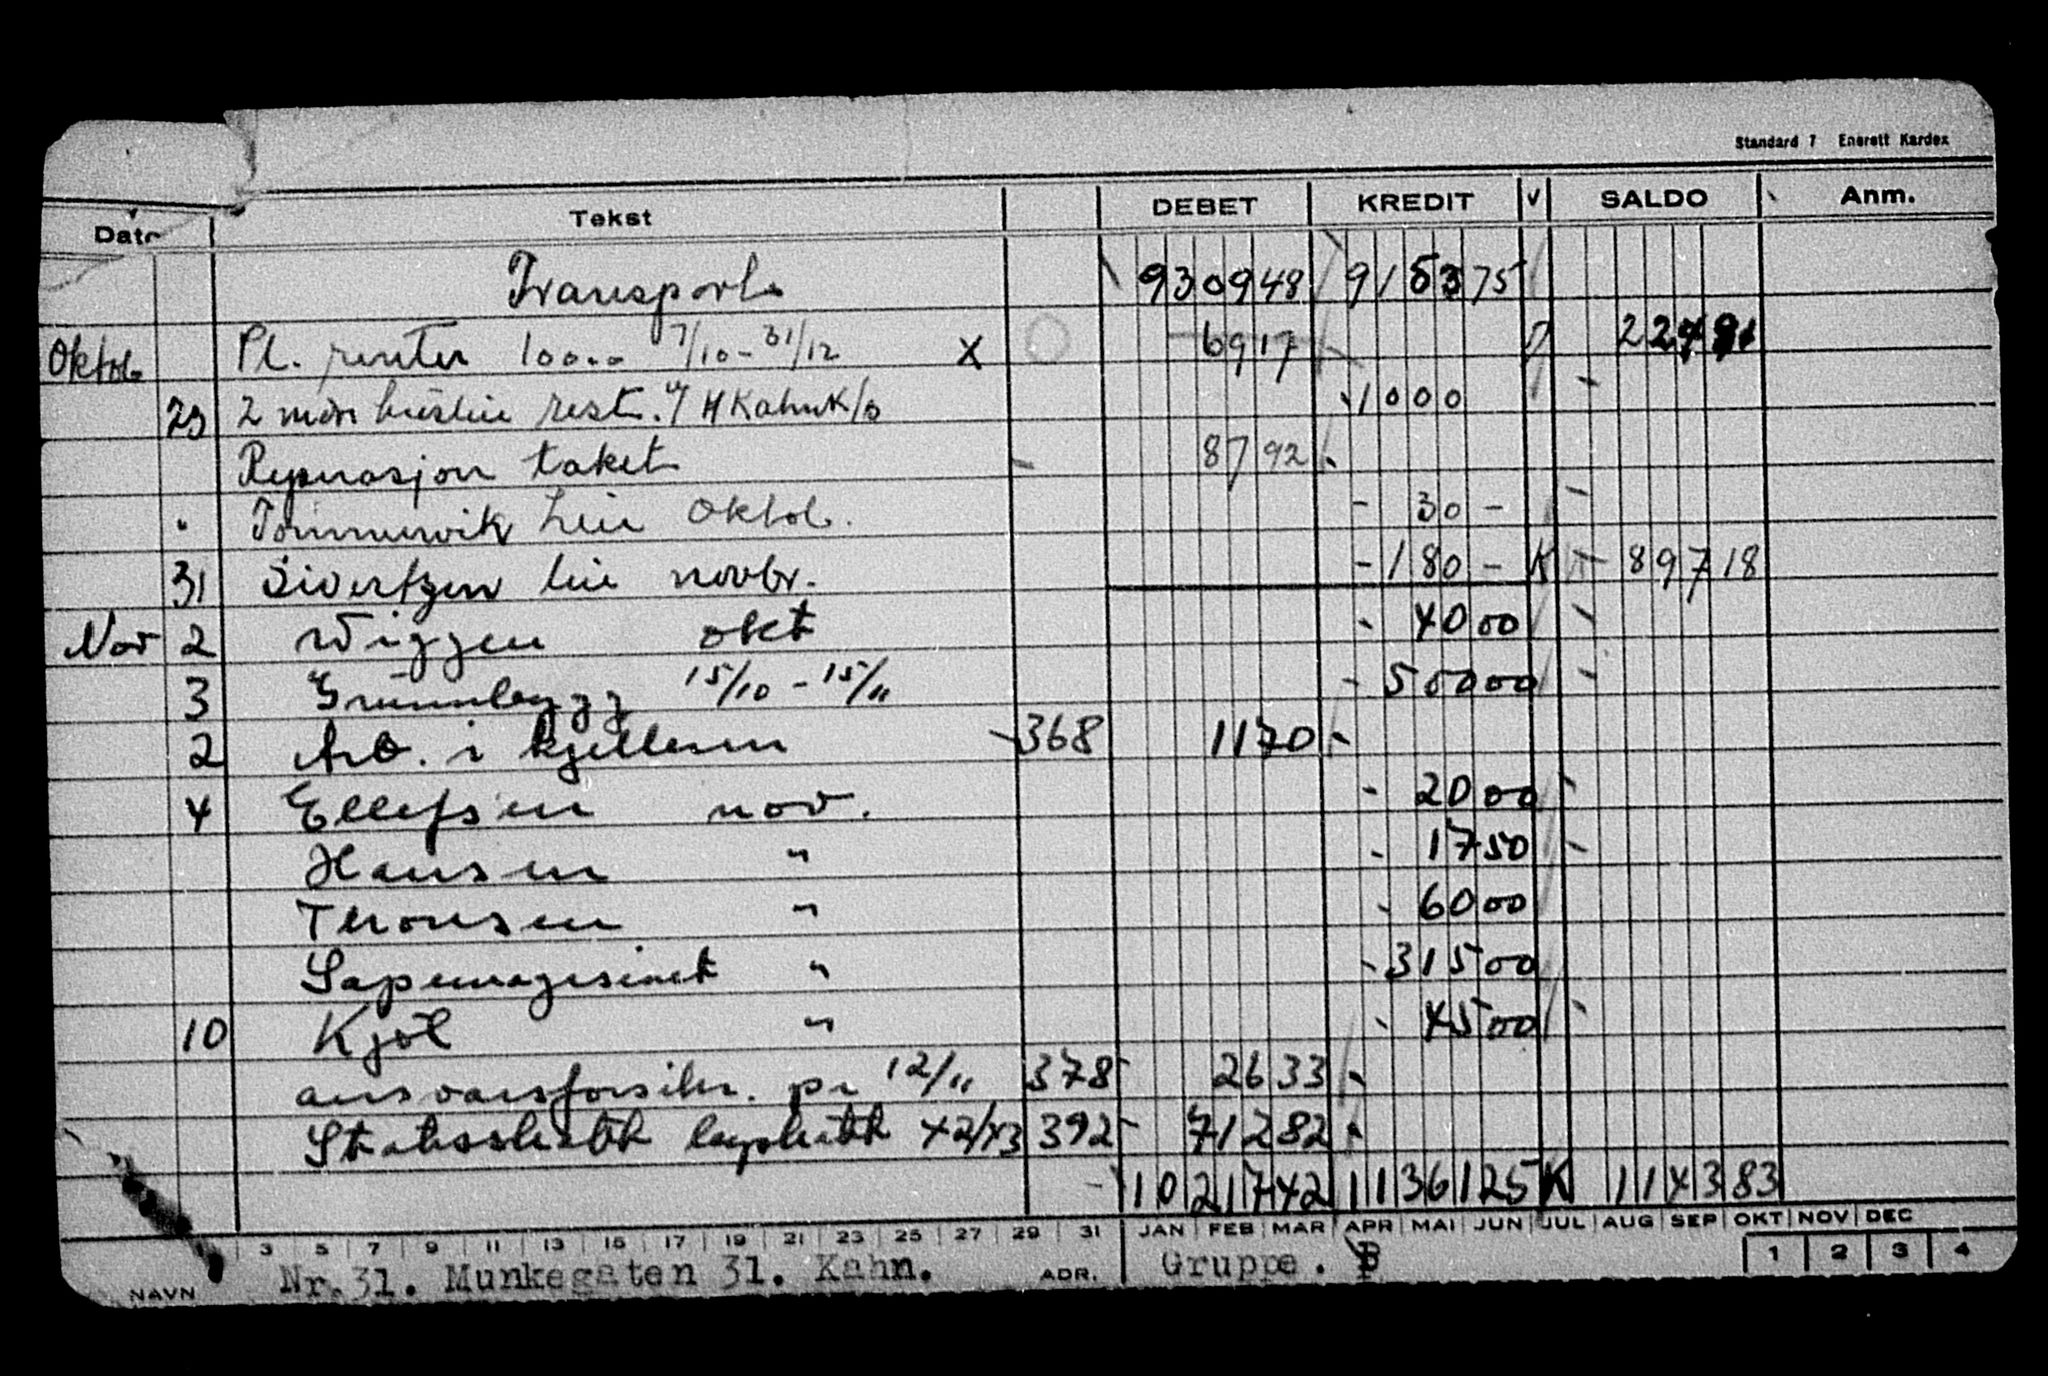 Standard 7 Enerett Kardex
Dato Tekst DEBET KREDIT V SALDO Anm.
Transport 9309 48 9155 75
Oktob. Pl. renter 10000 7/10 - 31/12 X 69 17 224 91
29 2 mdr husleie rest. H Kahn K/o 1000
Reperasjon taket 87 92
" Tommervik leie Oktob. 30 -
31 Sivertzen leie novbr. 180 - K 897 18
Nov 2 Wiggen okt 40 00
3 Grünnbygg 15/10 - 15/11 500 00
2 Arb. i kjelleren 368 11 70
4 Ellefsen nov. 20 00
Hansen " 17 50
Thonsen "  60 00
Sapemagesinet " 315 00
10 Kjøl " 45 00
ansvarsforsikr. pr 12/11 378 26 33
Statsskatt lyxskatt 42/43 392 712 82
10217 42 11361 25 K 1143 83
3 5 7 9 11 13 15 17 19 21 23 25 27 29 31 JAN FEB MAR APR MAI JUN JUL AUG SEP OKT NOV DEC
NAVN Nr.31. Munkegaten 31. Kahn. ADR. Gruppe. P 1 2 3 4